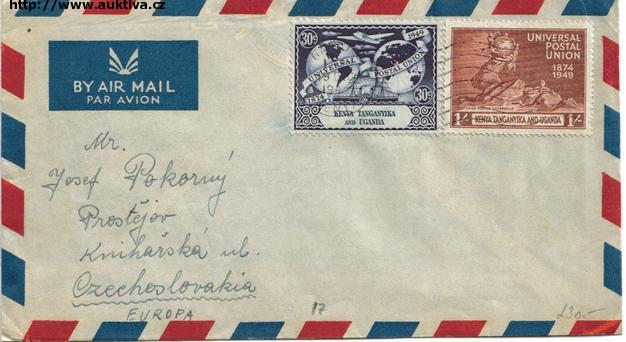 http://www.auktiva.cz
BY AIR MAIL
PAR AVION
30c 1949
UNIVERSAL POSTAL UNION
1874 30c
KENYA TANGANYIKA
AND UGANDA
UNIVERSAL
POSTAL
UNION
1874
1949
1/- KENYA TANGANYIKA AND UGANDA 1/-
Mr.
Josef Pokorný
Prostějov
Knihařská ul.
Czecheslovakia
EUROPA
17
£30.-